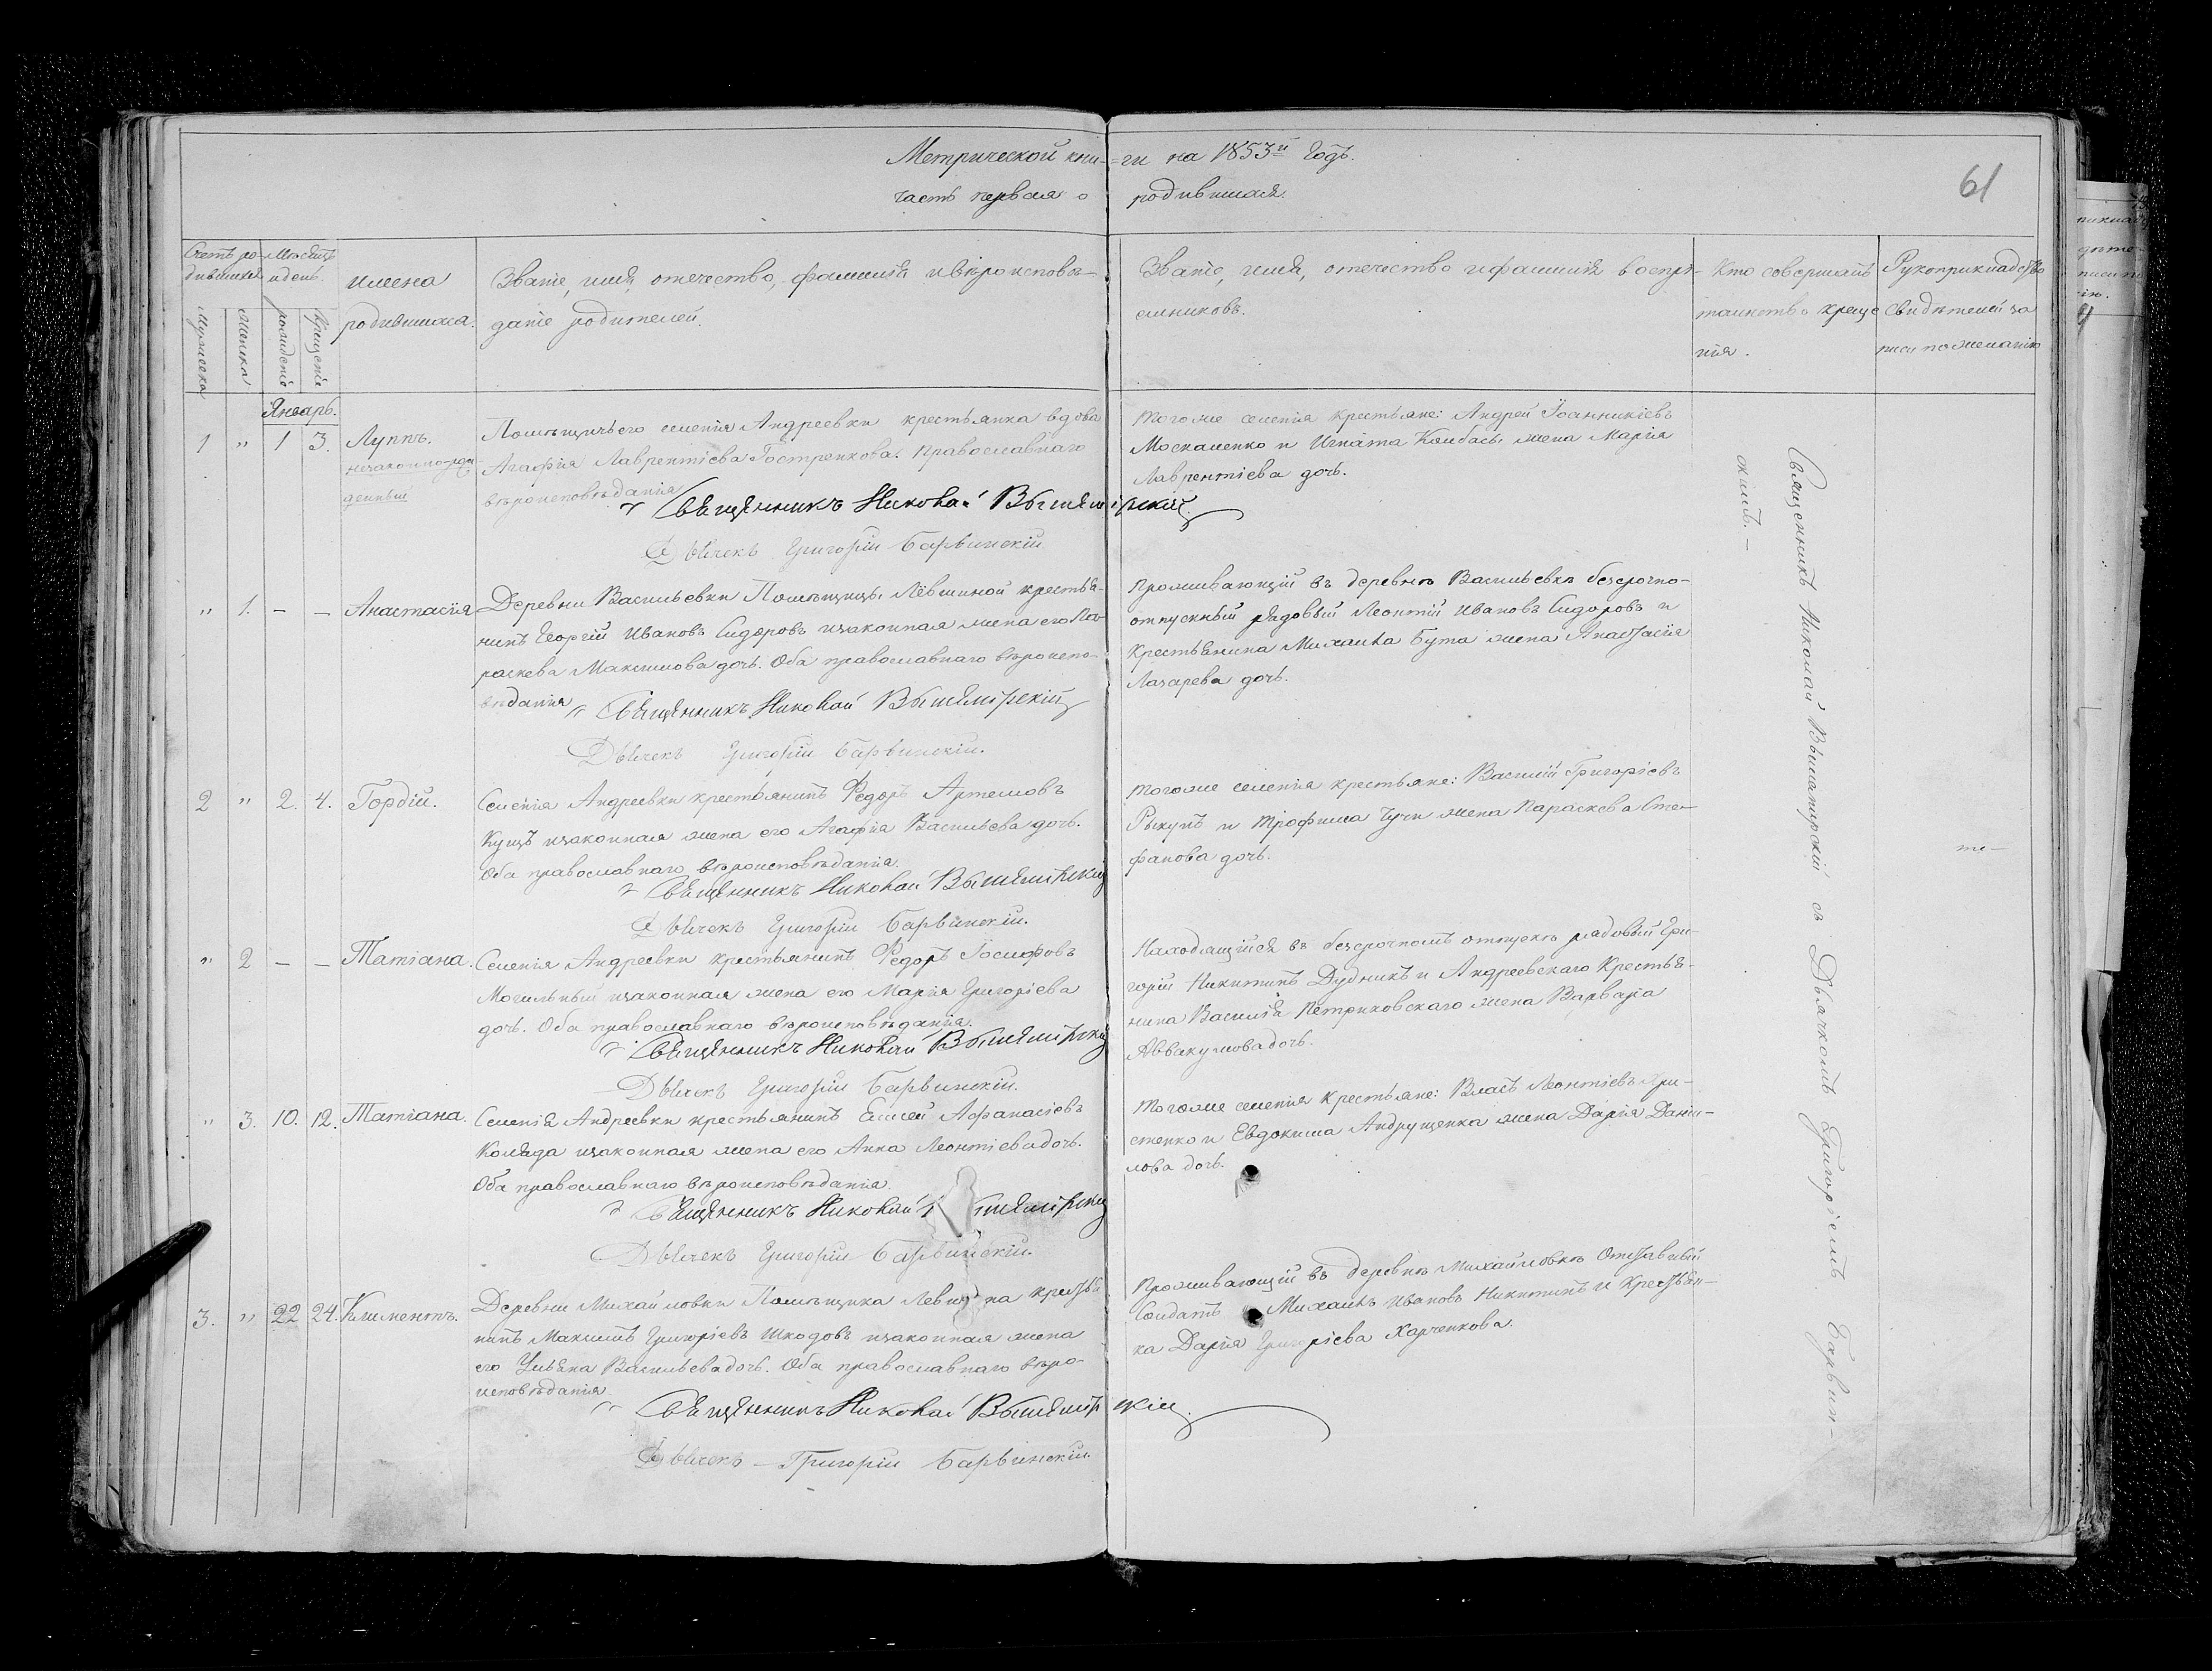 Метрической кни-ги на 1853й годъ.
часть первая о родившихся.
61
Счетъ ро-
дившихся
Мужеска
Женска
Мѣсяцъ
и день
рожденіе
крещеніе
имена
родившихся.
Званіе, имя, отечество, фамилія и вѣроисповѣ-
даніе родителей.
Званіе, имя, отечество и фамилія воспрі-
емниковъ.
Кто совершалъ
таинство креще
нія.
Рукоприкладство
свидѣтелей за
писи по желанію
Январь.
1 " 1 3. Луппъ.
незаконно-рож
денный
Помѣщичьего селенія Андреевки крестьянка вдова
Агафія Лаврентіева Гостренкова. Православнаго
вѣроисповѣданія
Священникъ Николай Вышемірскій
Дьячекъ Григорій Барвинскій
Тогоже селенія крестьяне: Андрей Іоанникіевъ
Москаленко и Игната Колбасы жена Марія
Лаврентіева дочь.
" 1. - - Анастасія
Деревни Васильевки Помѣщицы Лёвшиной крестья-
нинъ Георгій Ивановъ Сидоровъ и законная жена его Па-
раскева Максимова дочь. Оба православнаго вѣроиспо-
вѣданія
Священникъ Николай Вышемірскій
Дьячекъ Григорій Барвинскій.
Проживающій въ деревнѣ Васильевкѣ безсрочно-
отпускный рядовый Леонтій Ивановъ Сидоровъ и
крестьянина Михаила Бута жена Анастасія
Лазарева дочь.
2 " 2. 4. Гордій.
Селенія Андреевки крестьянинъ Ѳедоръ Артемовъ
Куцъ и законная жена его Агафія Васильева дочь.
Оба православнаго вѣроисповѣданія.
Священникъ Николай Вышемірскій
Дьячекъ Григорій Барвинскій.
Тогоже селенія крестьяне: Василій Григоріевъ
Рыкунъ и Трофима Чучи жена Параскева Сте-
фанова дочь.
" 2 - - Татіана.
Селенія Андреевки крестьянинъ Ѳедоръ Іосифовъ
Могильный и законная жена его Марія Григоріева
дочь. Оба православнаго вѣроисповѣданія.
Священникъ Николай Вышемірскій
Дьячекъ Григорій Барвинскій.
Находящійся въ безсрочномъ отпускѣ рядовый Гри-
горій Никитинъ Дудникъ и Андреевскаго крестья-
нина Василія Петриковскаго жена Варвара
Аввакумова дочь.
" 3. 10. 12. Татіана.
Селенія Андреевки крестьянинъ Елисей Афанасіевъ
Коляда и законная жена его Анна Леонтіева дочь.
Оба православнаго вѣроисповѣданія.
Священникъ Николай Вышемірскій
Дьячекъ Григорій Барвинскій.
Тогоже селенія крестьяне: Власъ Леонтіевъ Хри-
стенко и Евдокима Андрущенка жена Дарія Дани-
лова дочь.
3. " 22 24. Климентъ.
Деревни Михайловки Помѣщика Левшина крестья
нинъ Максимъ Григоріевъ Шкодовъ и законная жена
его Ульяна Васильева дочь. Оба православнаго вѣро-
исповѣданія
Священникъ Николай Вышемірскій.
Дьячекъ - Григорій Барвинскій.
Проживающій въ деревнѣ Михайловкѣ Отставный
Солдатъ Михаилъ Ивановъ Никитинъ и крестьян-
ка Дарія Григоріева Харченкова.
Священникъ Николай Вышемірскій съ Дьячкомъ Григоріемъ Барвин-
скимъ. -